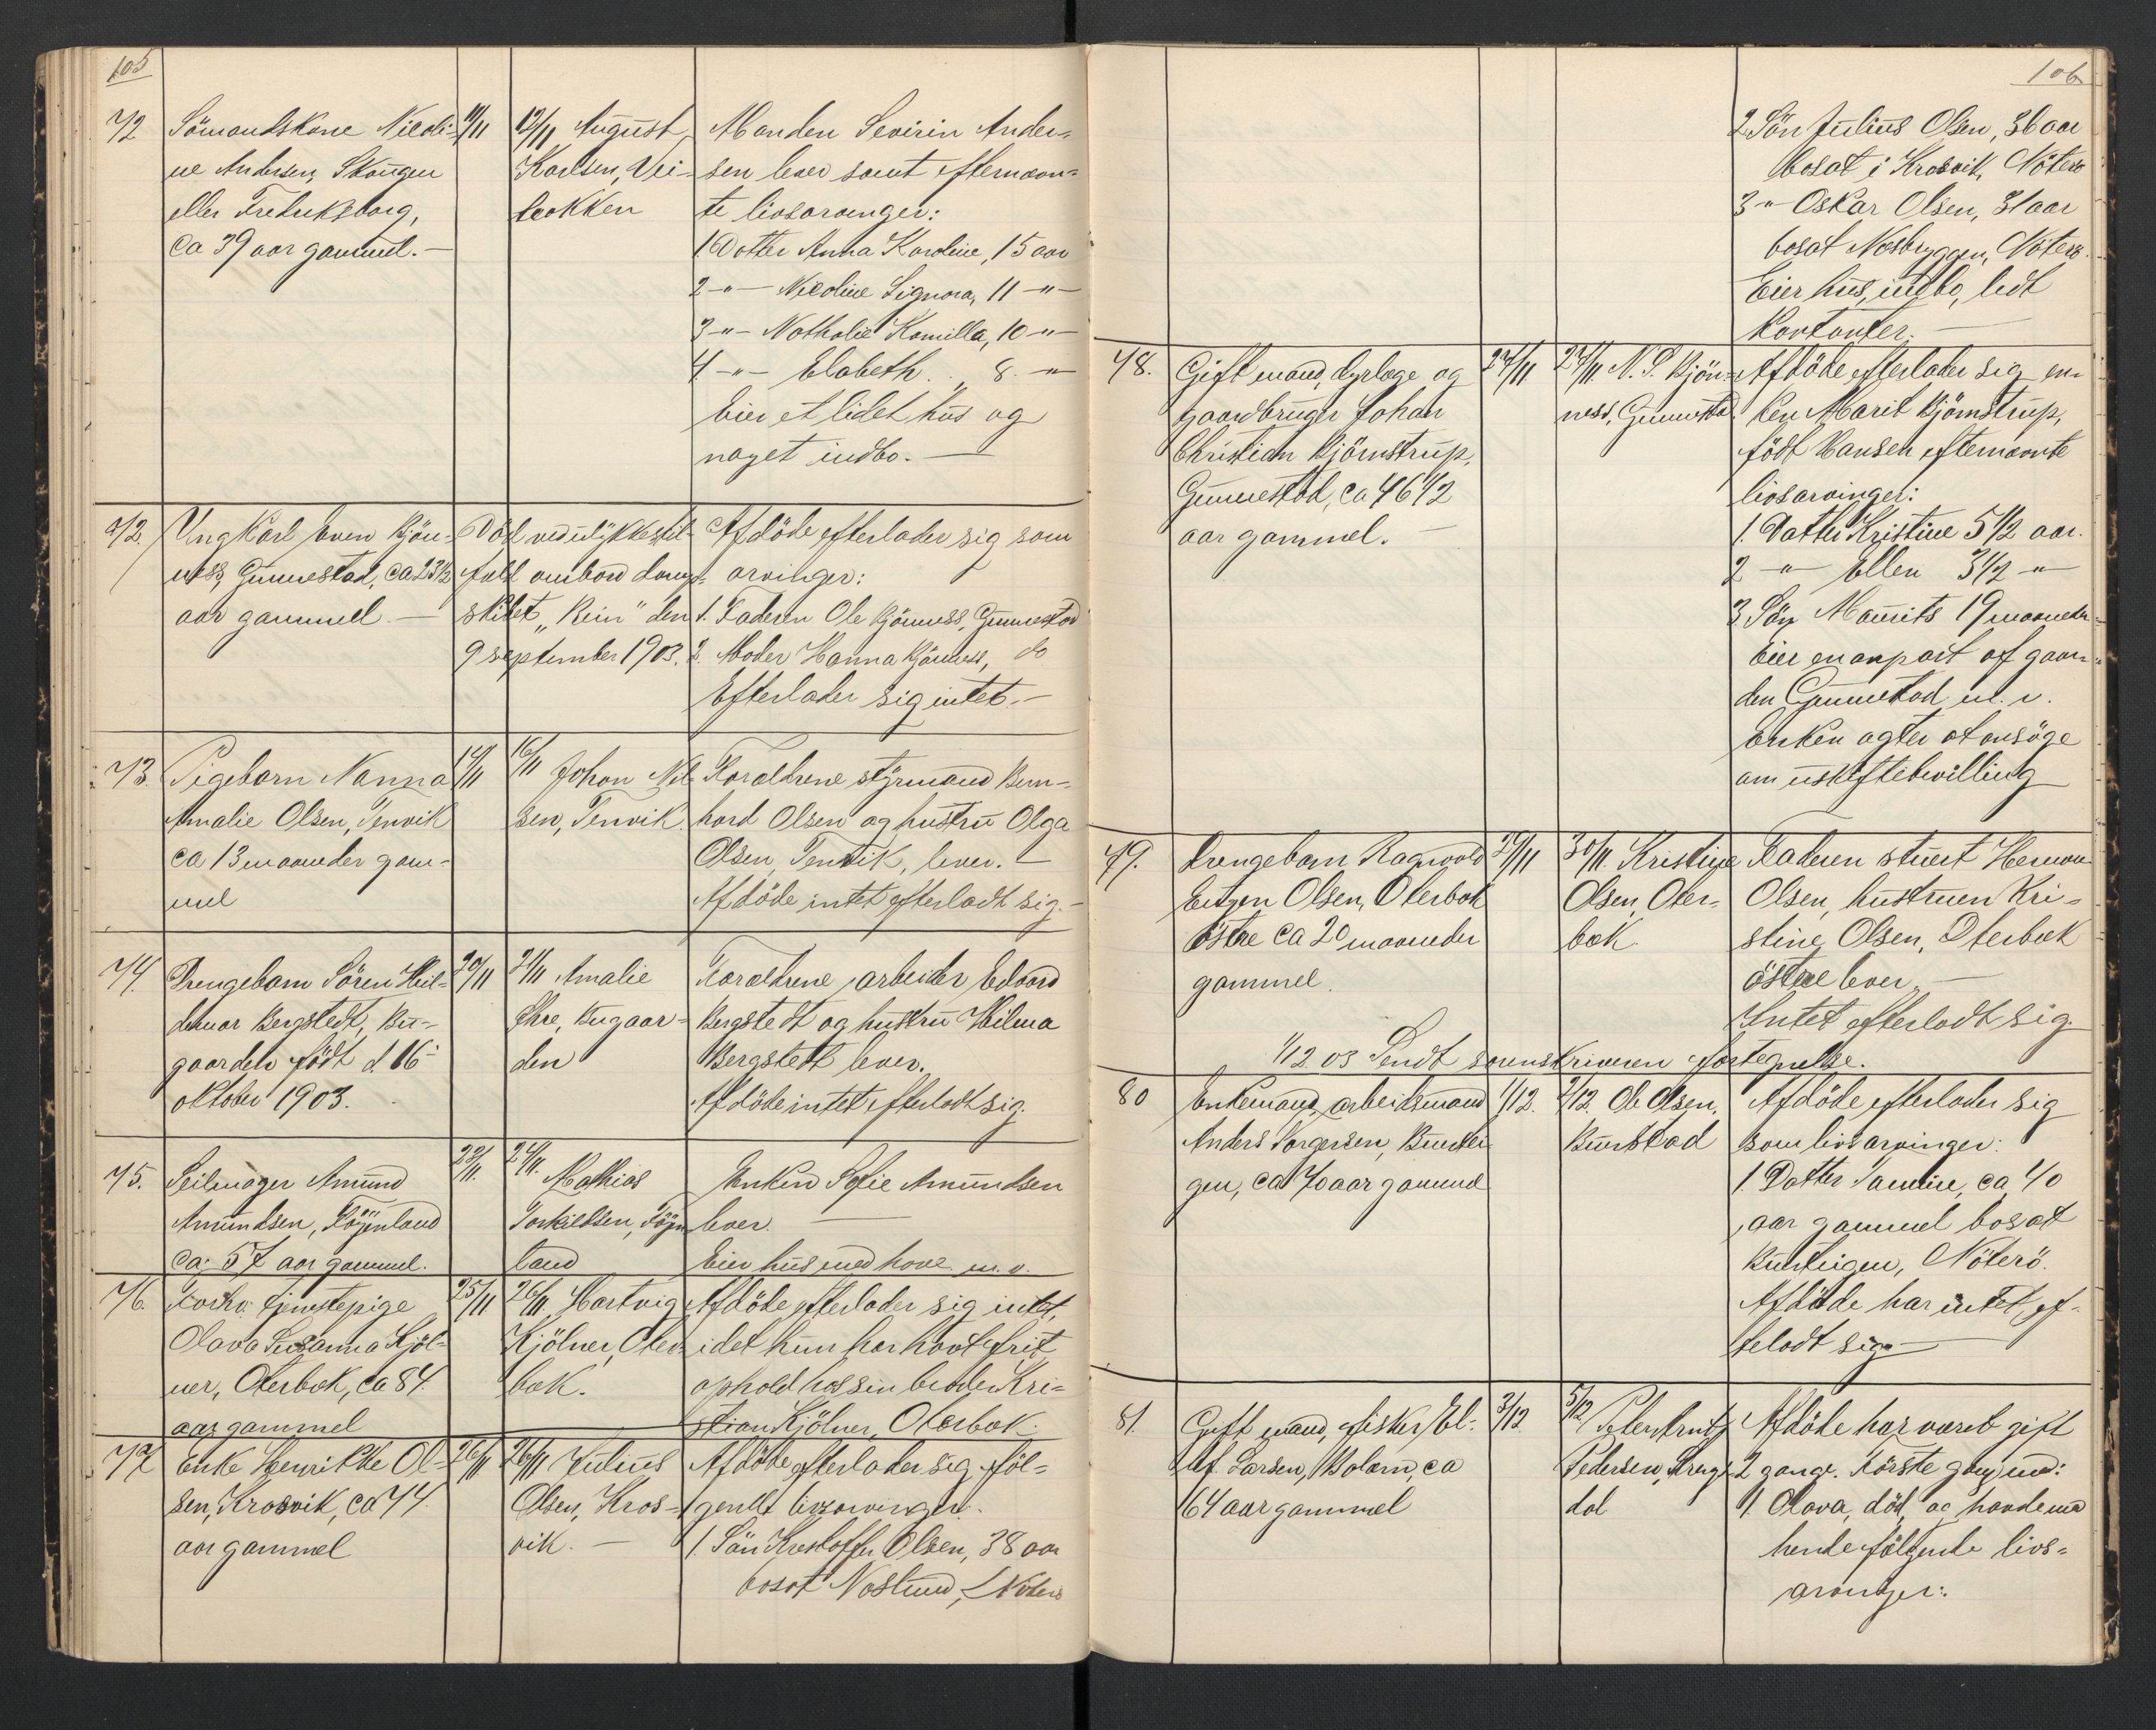 105
72
Sömandskone Nicoli-
ne Andersen, Skaugen
eller Fredriksborg,
ca 39 aar gammel. —
11/11
12/11 August
Karlsen, Vei-
lokken
Manden Severin Ander-
sen lever samt efternævn-
te livsarvinger:
1 Datter Anna Karoline, 15 aar
2 -"- Nicoline Signora, 11 -"-
3 -"- Nathalie Kamilla, 10 -"-
4. -"- Elabeth 8. -"-
Eier et lidet hus og
noget indbo. —
72.
Ungkarl Even Bjön-
ness, Gunnestad, ca 23 1/2
aar gammel. —
Död ved ulykkestil-
fælde ombord damp-
skibet "Rein" den
9 september 1903.
Afdöde efterlader sig som
arvinger:
1. Faderen Ole Bjönness, Gunnestad
2. Moder Hanna Bjönness, do
Efterlader sig intet. —
73.
Pigebarn Nanna
Amalie Olsen, Tenvik
ca 13 maaneder gam-
mel
14/11
16/11 Johan Nil-
sen, Tenvik.
Forældrene styrmand Bern-
hard Olsen og hustru Olga
Olsen, Tenvik, lever. —
Afdöde intet efterladt sig. —
74.
Drengebarn Sören Hil-
demar Bergstedt, Bu-
gaarden født d. 16
oktober 1903.
20/11
21/11 Amalie
Ihre, Bugaar-
den
Forældrene arbeider Edvard
Bergstedt og hustru Hilma
Bergstedt lever.
Afdöde intet efterladt sig.
75.
Seilmager Amund
Amundsen, Föÿnland
ca. 57 aar gammel.
22/11.
24/11. Mathias
Torkildsen, Föyn
land
Enken Sofie Amundsen
lever. —
Eier hus med have m. v.
76.
Forhv. tjenestepige
Olava Susanna Kjöl-
ner, Oterbæk, ca 84.
aar gammel
25/11
26/11 Hartvig
Kjölner, Oter-
bæk.
Afdöde efterlader sig intet,
idet hun har havt frit
ophold hos sin broder Kri-
stian Kjölner, Oterbæk.
77
Enke Henrikke Ol-
sen, Krosvik, ca 74.
aar gammel
26/11
26/11 Julius
Olsen, Kros-
vik. —
Afdöde efterlader sig föl-
gende livsarvinger:
1. Sön Kristoffer Olsen, 38 aar
bosat Nöslund, Nöterö
106
2 Sön Julius Olsen, 36 aar
bosat i Krosvik, Nöterö
3 -"- Oskar Olsen, 31 aar
bosat Næsbryggen, Nöterö.
Eier hus, indbo, lidt
kontanter. —
78.
Gift mand, dyrlæge og
gaardbruger Johan
Christian Bjömstrup,
Gunnestad, ca 46 1/2
aar gammel. —
24/11
27/11. N. P. Bjön-
ness, Gunnestad
Afdöde efterlader sig en-
ken Marit Bjömstrup,
födt Hansen efternævnte
livsarvinger:
1. Datter Kristine 5 1/2 aar.
2 -"- Ellen 3 1/2 -"-
3 Sön Maurits 19 maaneder
Eier en anpart af gaar-
den Gunnestad m. v.
Enken agter at ansöge
om uskiftebevilling
79.
Drengebarn Ragnvald
Eugen Olsen, Oterbæk
östre ca 20 maaneder
gammel.
29/11
30/11. Kristine
Olsen, Oter-
bæk.
Faderen stuert Herman
Olsen, hustruen Kri-
stine Olsen, Oterbæk
östre lever. —
Intet efterladt sig.
1/12 03 Sendt sorenskriveren fortegnelse.
80
Enkemand, arbeidsmand
Anders Torgersen, Buerstei-
gen, ca 70 aar gammel
1/12.
2/12. Ole Olsen,
Buerstad
Afdöde efterlader sig
som livsarvinger:
1. Datter Samine, ca 40
aar gammel bosat
Buersteigen, Nöterö.
Afdöde har intet ef-
terladt sig. —
81.
Gift mand, fisker El-
lef Larsen, Bolærn, ca
64 aar gammel
3/12
5/12 Peter Arnt
Pedersen, Kruge
dal
Afdöde har været gift
2 gange. Förste gang med:
1. Olava, död, og havde med
hende følgende livs-
arvinger: